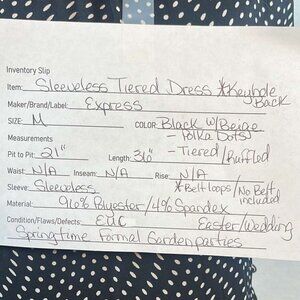 Inventory Slip
Item: Sleeveless Tiered Dress *Keyhole
Back
Maker/Brand/Label: Express
SIZE: M COLOR: Black w/Beige
Measurements - Polka Dots
Pit to Pit: 21" Length: 36" - Tiered/Ruffled
Waist: N/A Inseam: N/A Rise: N/A
Sleeve: Sleeveless *Belt loops/No Belt
included
Material: 96% Polyester/4% Spandex
Condition/Flaws/Defects: EUC Easter/Wedding
Springtime Formal Gardenparties